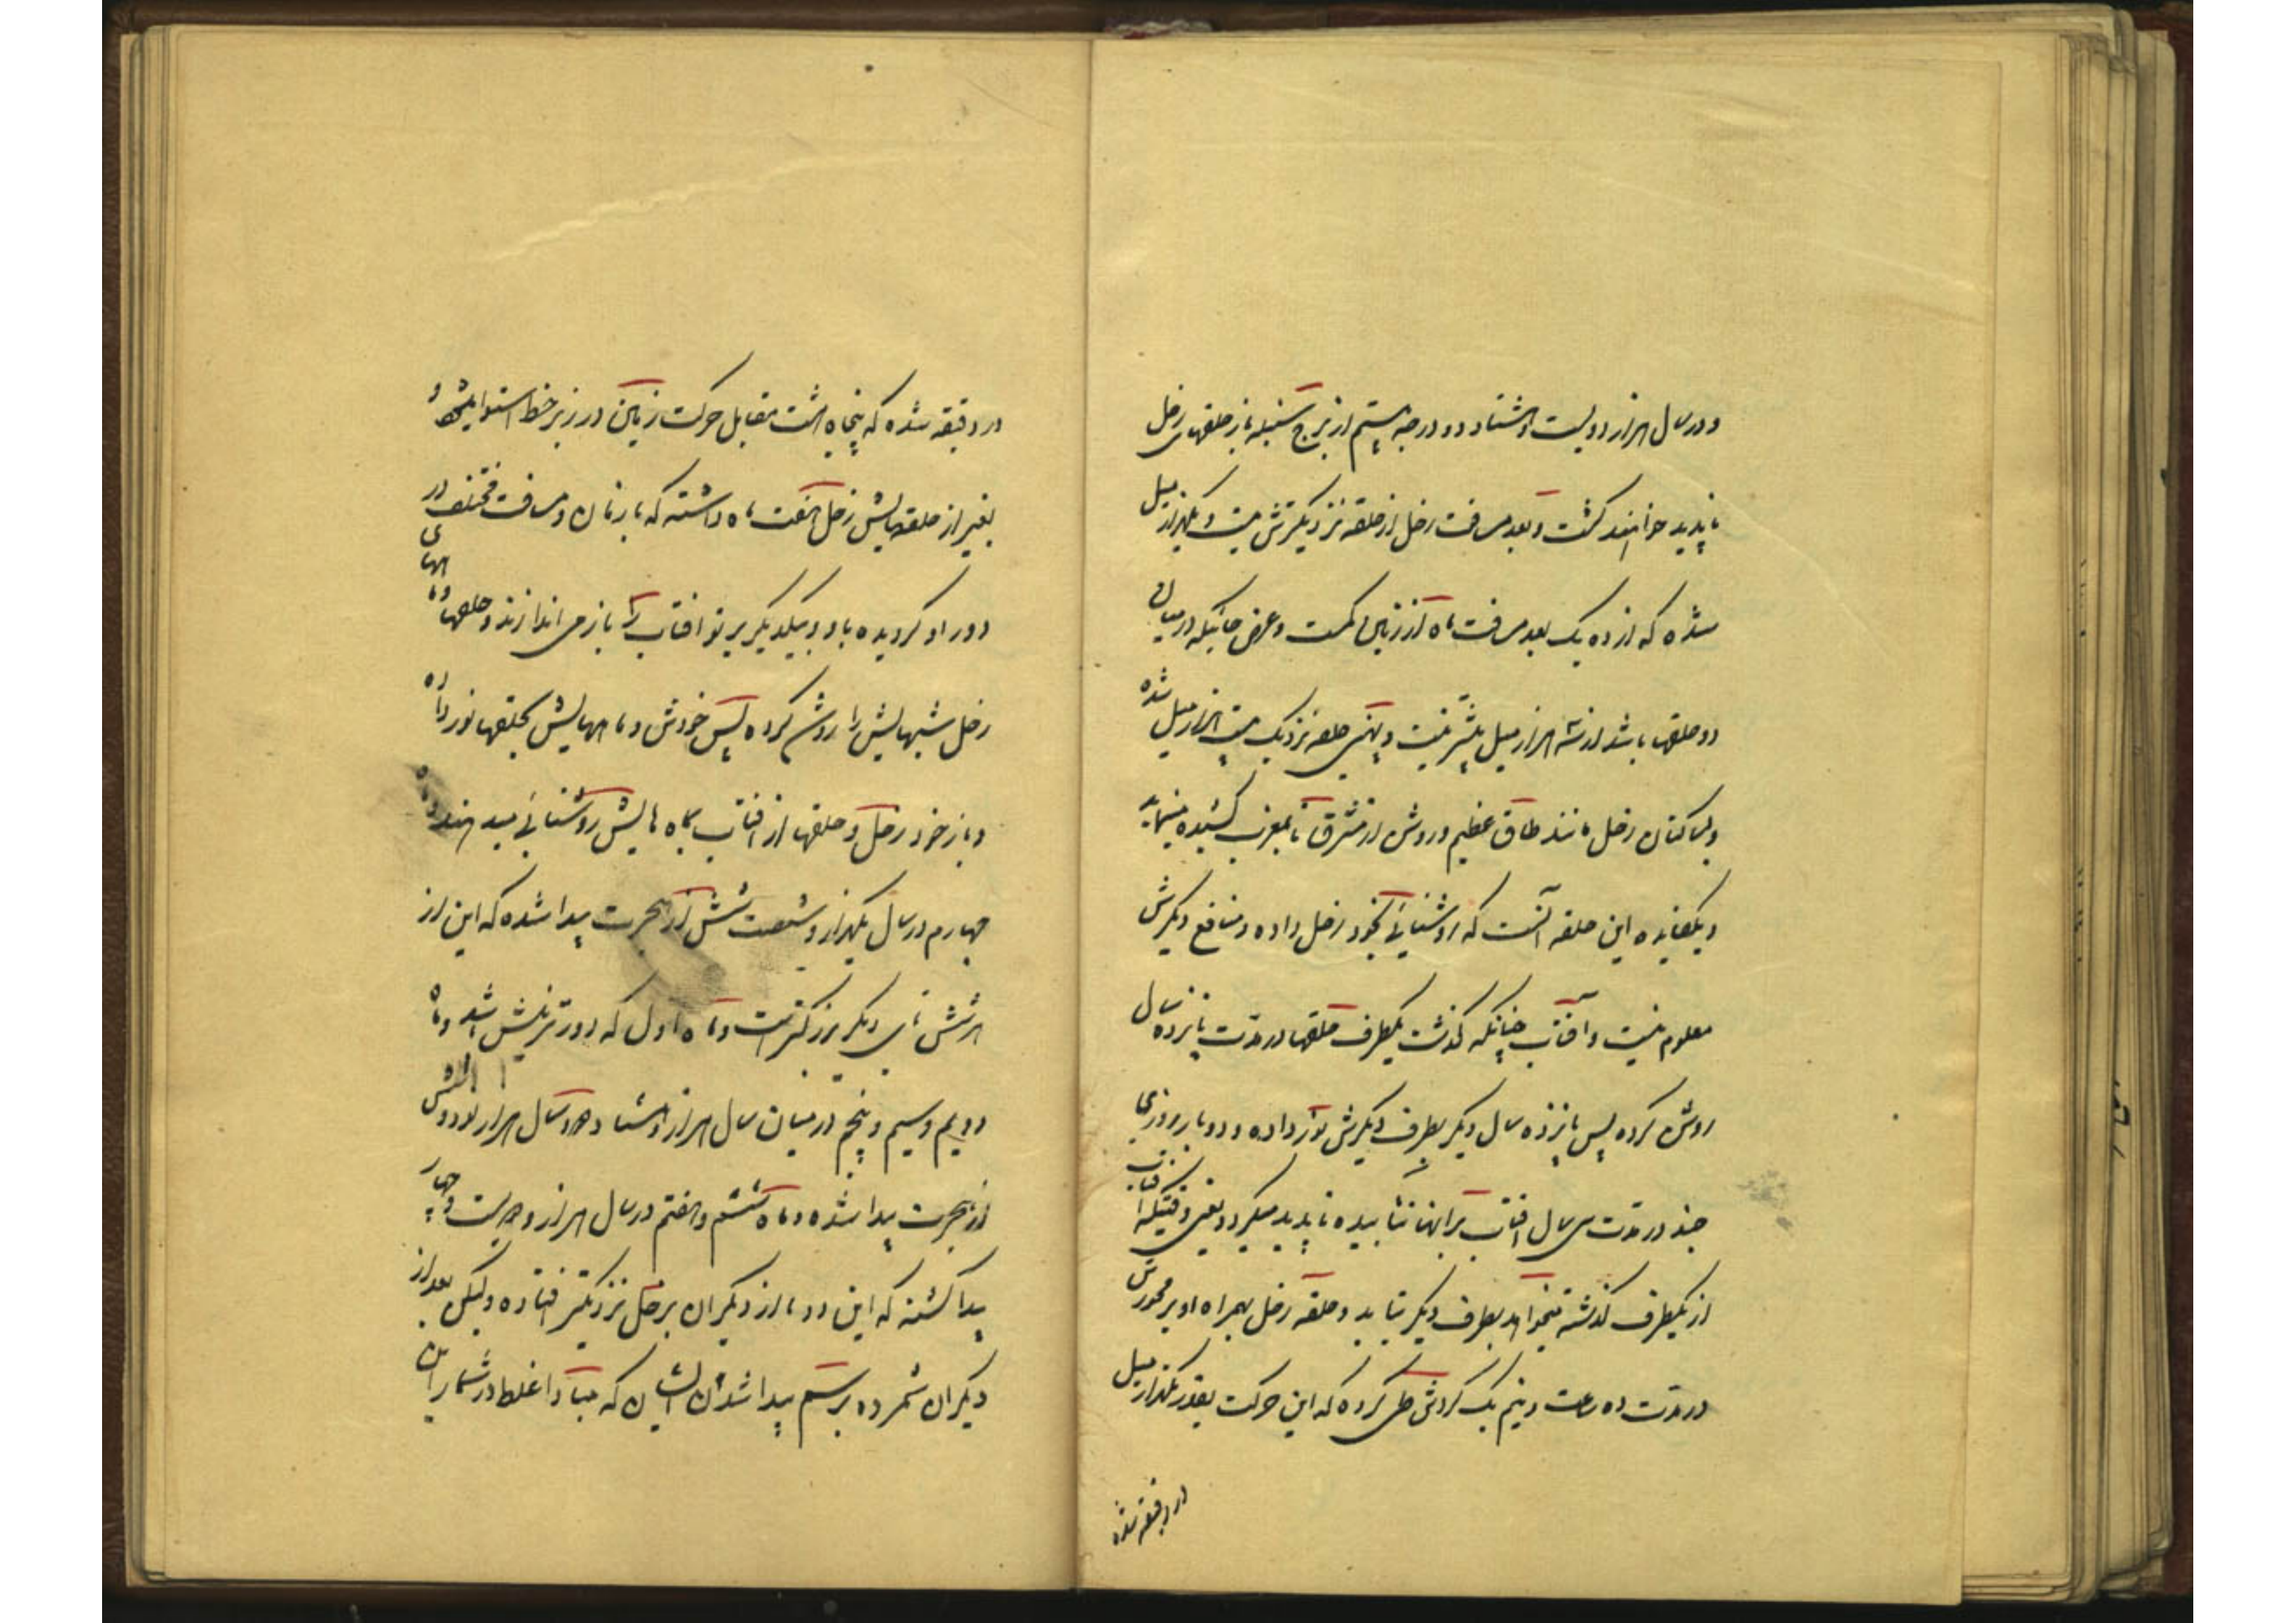 و در سال هزار دویست و هشتاد دو در درجه بیستم از برج سنبله باز حلقهای زحل
ناپدید خواهند گشت و بعد مسافت زحل از حلقه نزدیکترش بیست و یکهزار میل
شده که از ده یک بعد مسافت ماه از زمین کمست و عرض جائیکه در میان
دو حلقها باشد از سه هزار میل بیشتر نیست و پهنی حلقه نزدیک بیست هزار میل شده
و بساکنان زحل مانند طاق عظیم و روشن از مشرق تا بمغرب کشیده مینماید
و یکفایده این حلقه آنست که روشنائی بخود زحل داده و منافع دیگرش
معلوم نیست و آفتاب چنانکه گذشت یکطرف حلقها در مدت پانزده سال
روشن کرده پس پانزده سال دیگر بطرف دیگرش نور داده و دو بار روزی
چند در مدت سی سال آفتاب برانها نتابیده ناپدید میگردد یعنی وقتیکه آفتاب
از یکطرف گذشته میخواهد بطرف دیگر بتابد و حلقه زحل بهمراه او بر محورش
در مدت ده ساعت و نیم یک گردش طی کرده که این حرکت بقدر یکهزار میل
در دقیقه شده
در دقیقه شده که پنجاه هشت مقابل حرکت زمین در زیر خط استوا میشود و
بغیر از حلقهایش زحل هفت ماه داشته که با زمان و مسافت مختلف در
دور او گردیده باو و بیکدیگر پرتو آفتاب را باز می اندازند و حلقها و ماههای
زحل شبهایش را روشن کرده پس خودش و ماههایش بحلقها نور داده
و باز خود زحل و حلقها از آفتاب بماه هایش روشنائی میدهند و ماه
چهارم در سال یکهزار و شصت شش از هجرت پیدا شده که این از
هر شش تای دیگر بزرگتر است و ماه اول که دورترینش باشد و ماه
دویم و سیم و پنجم در میان سال هزار و هشتاد و دو سال هزار نود و شش
از هجرت پیدا شده و ماه ششم و هفتم در سال هزار و دویست و چهار
پیدا گشته که این دو ماه از دیگران بزحل نزدیکتر افتاده ولیکن بعد از
دیگران شمرده برسم پیدا شدن ایشان که مبادا غلط در شمار این